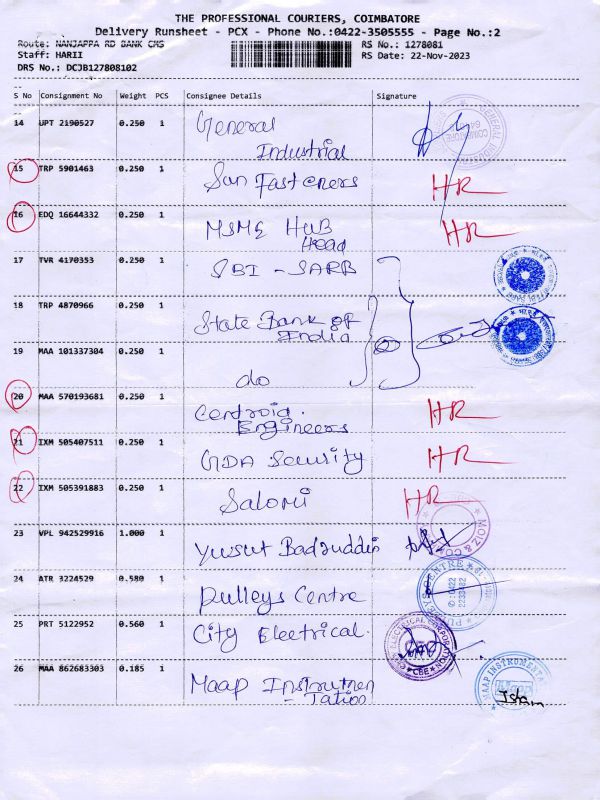 THE PROFESSIONAL COURIERS, COIMBATORE
Delivery Runsheet - PCX - Phone No.:0422-3505555 - Page No.:2
Route: NANJAPPA RD BANK CMS
RS No.: 1278081
Staff: HARII
RS Date: 22-Nov-2023
DRS No.: DCJB127808102
S No Consignment No Weight PCS Consignee Details Signature
14 UPT 2190527 0.250 1 General
Industrial
15 TRP 5901463 0.250 1 Sun Fasteners HR
16 EDQ 16644332 0.250 1 MSME HUB HR
Head
17 TVR 4170353 0.250 1 SBI - SARB
18 TRP 4870966 0.250 1 State Bank of
India
19 MAA 101337304 0.250 1
do
20 MAA 570193681 0.250 1 Centroid. HR
Engineers
21 IXM 505407511 0.250 1 GDA Security HR
22 IXM 505391883 0.250 1 Salomi HR
MOIZ & CO
23 VPL 942529916 1.000 1 Yusuf Badruddin
24 ATR 3224529 0.580 1 Pulleys Centre
PULLEYS CENTRE
25 PRT 5122952 0.560 1 City Electrical.
ELECTRICAL CORPORATION
CBE
26 MAA 862683303 0.185 1 Maap Instrumen
- tation
MAAP INSTRUMENTA